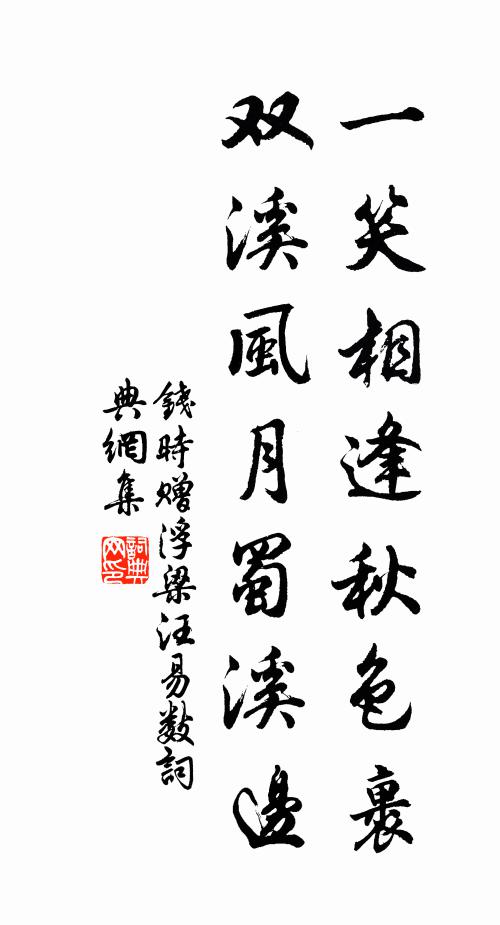 一笑相逢秋色裏
双溪風月蜀溪邊
錢時贈浮梁汪易數詞
典網集
詞典網印